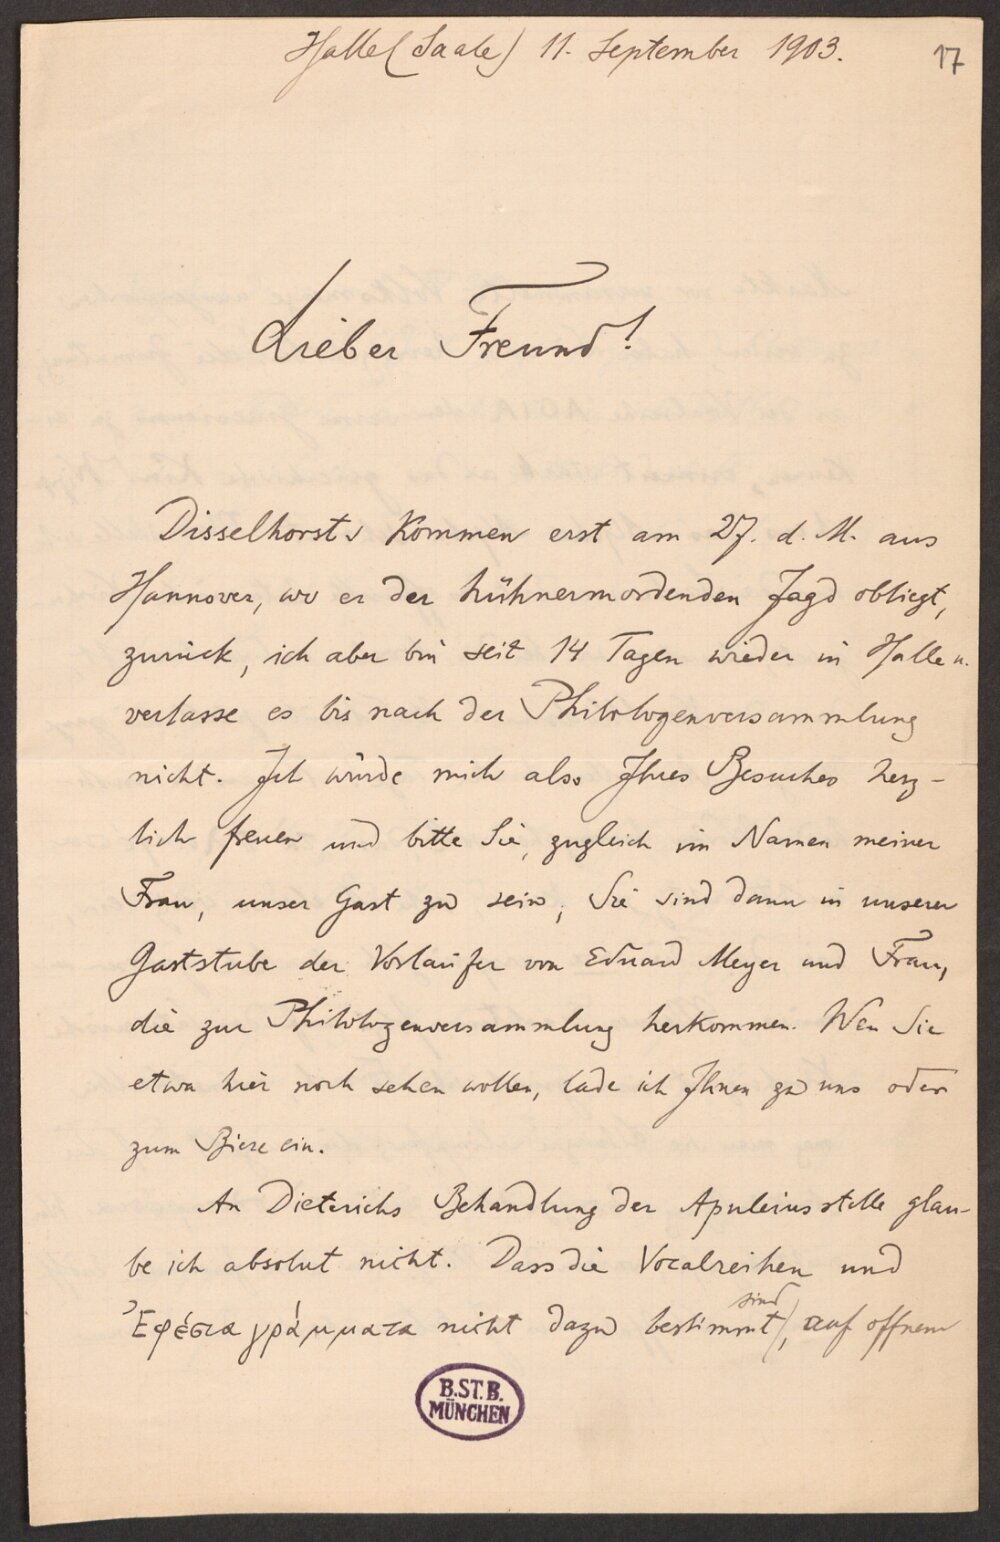 Halle (Saale) 11. September 1903.
17
Lieber Freund!
Disselhorsts kommen erst am 27. d. M. aus
Hannover, wo er der hühnermordenden Jagd obliegt,
zurück, ich aber bin seit 14 Tagen wieder in Halle u.
verlasse es bis nach der Philologenversammlung
nicht. Ich würde mich also Ihres Besuches herz-
lich freuen und bitte Sie, zugleich im Namen meiner
Frau, unser Gast zu sein; Sie sind dann in unserer
Gaststube der Vorläufer von Eduard Meyer und Frau,
die zur Philologenversammlung herkommen. Wen Sie
etwa hier noch sehen wollen, lade ich Ihnen zu uns oder
zum Biere ein.
An Dieterichs Behandlung der Apuleiusstelle glau-
be ich absolut nicht. Dass die Vocalreihen und
Ἐφέσια γράμματα nicht dazu bestimmt sind, auf offnem
B.ST.B.
MÜNCHEN